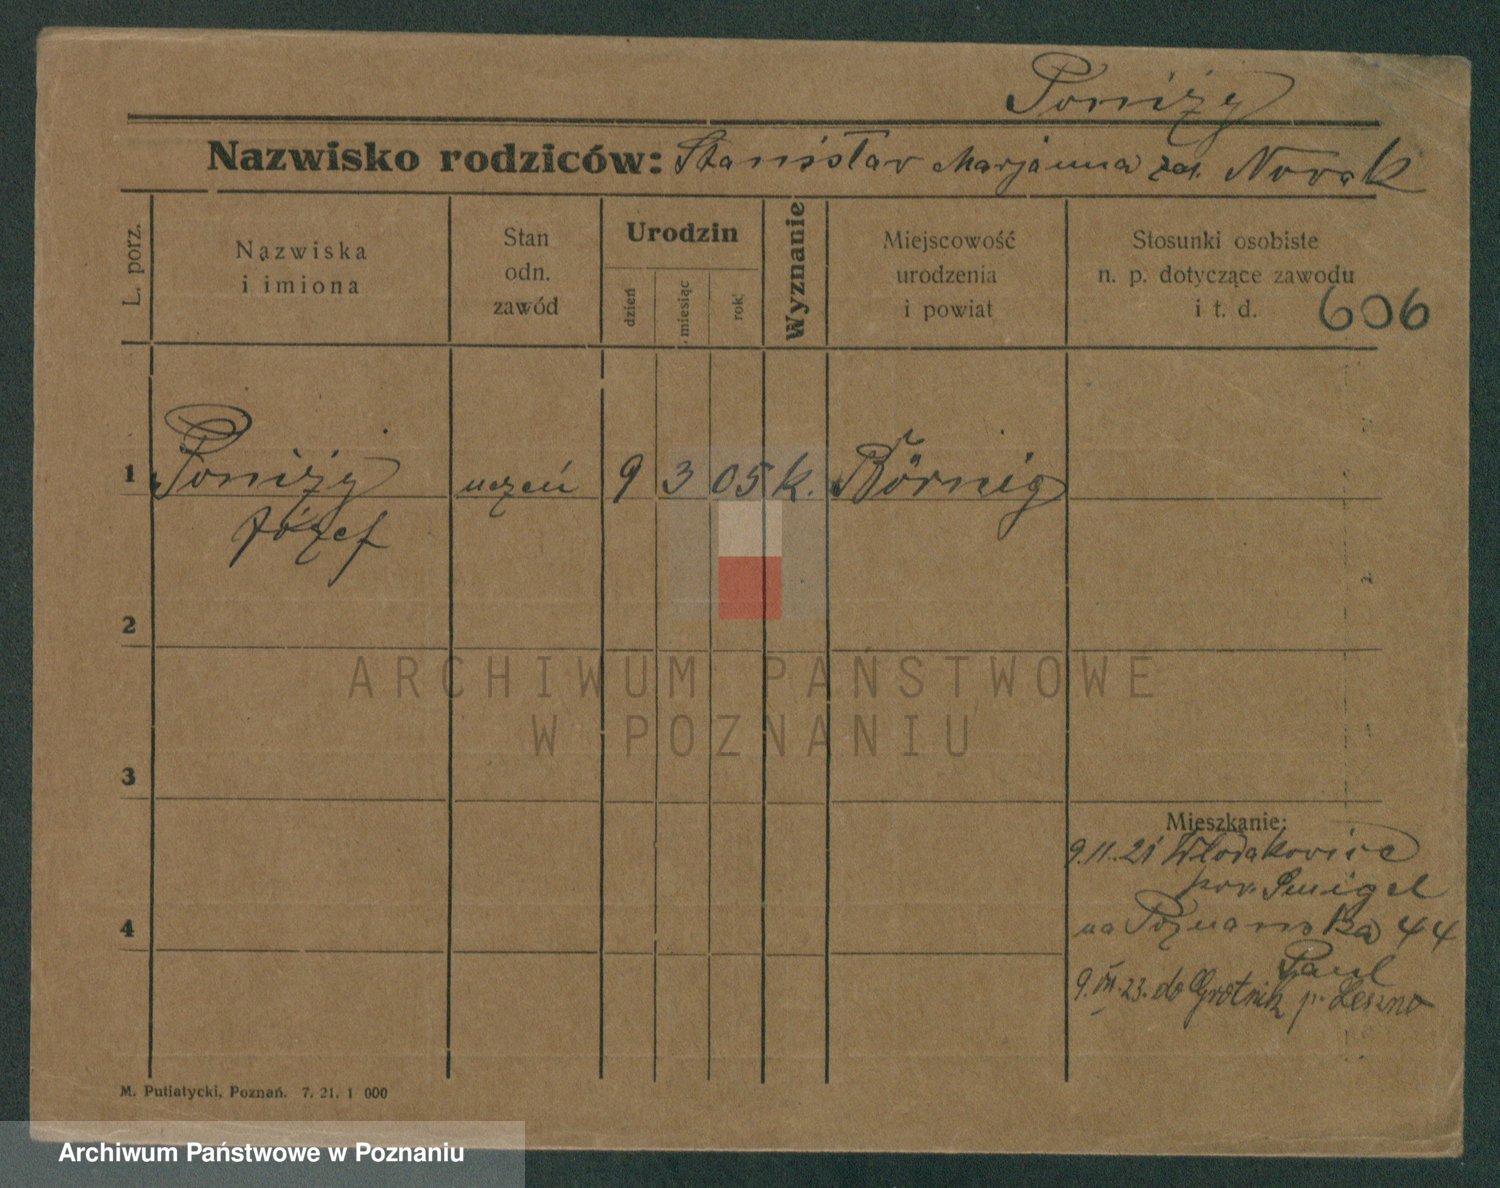 Poniży
Nazwisko rodziców: Stanisław Marjanna zd. Nowak
L. porz.
Nazwiska
i imiona
Stan
odn.
zawód
Urodzin
dzień
miesiąc
rok
Wyznanie
Miejscowość
urodzenia
i powiat
Stosunki osobiste
n. p. dotyczące zawodu
i t. d.
606
1 Poniży uczeń 9 3 05 k. Börnig
Józef
2
ARCHIWUM PAŃSTWOWE
W POZNANIU
3
Mieszkanie:
9.11.21 Włodakowice
pow. Śmigel
4
na Poznanska 44
Paul
9.III.23. do Grotnik p. Leszno
M. Putiatycki, Poznań. 7. 21. 1 000
Archiwum Państwowe w Poznaniu